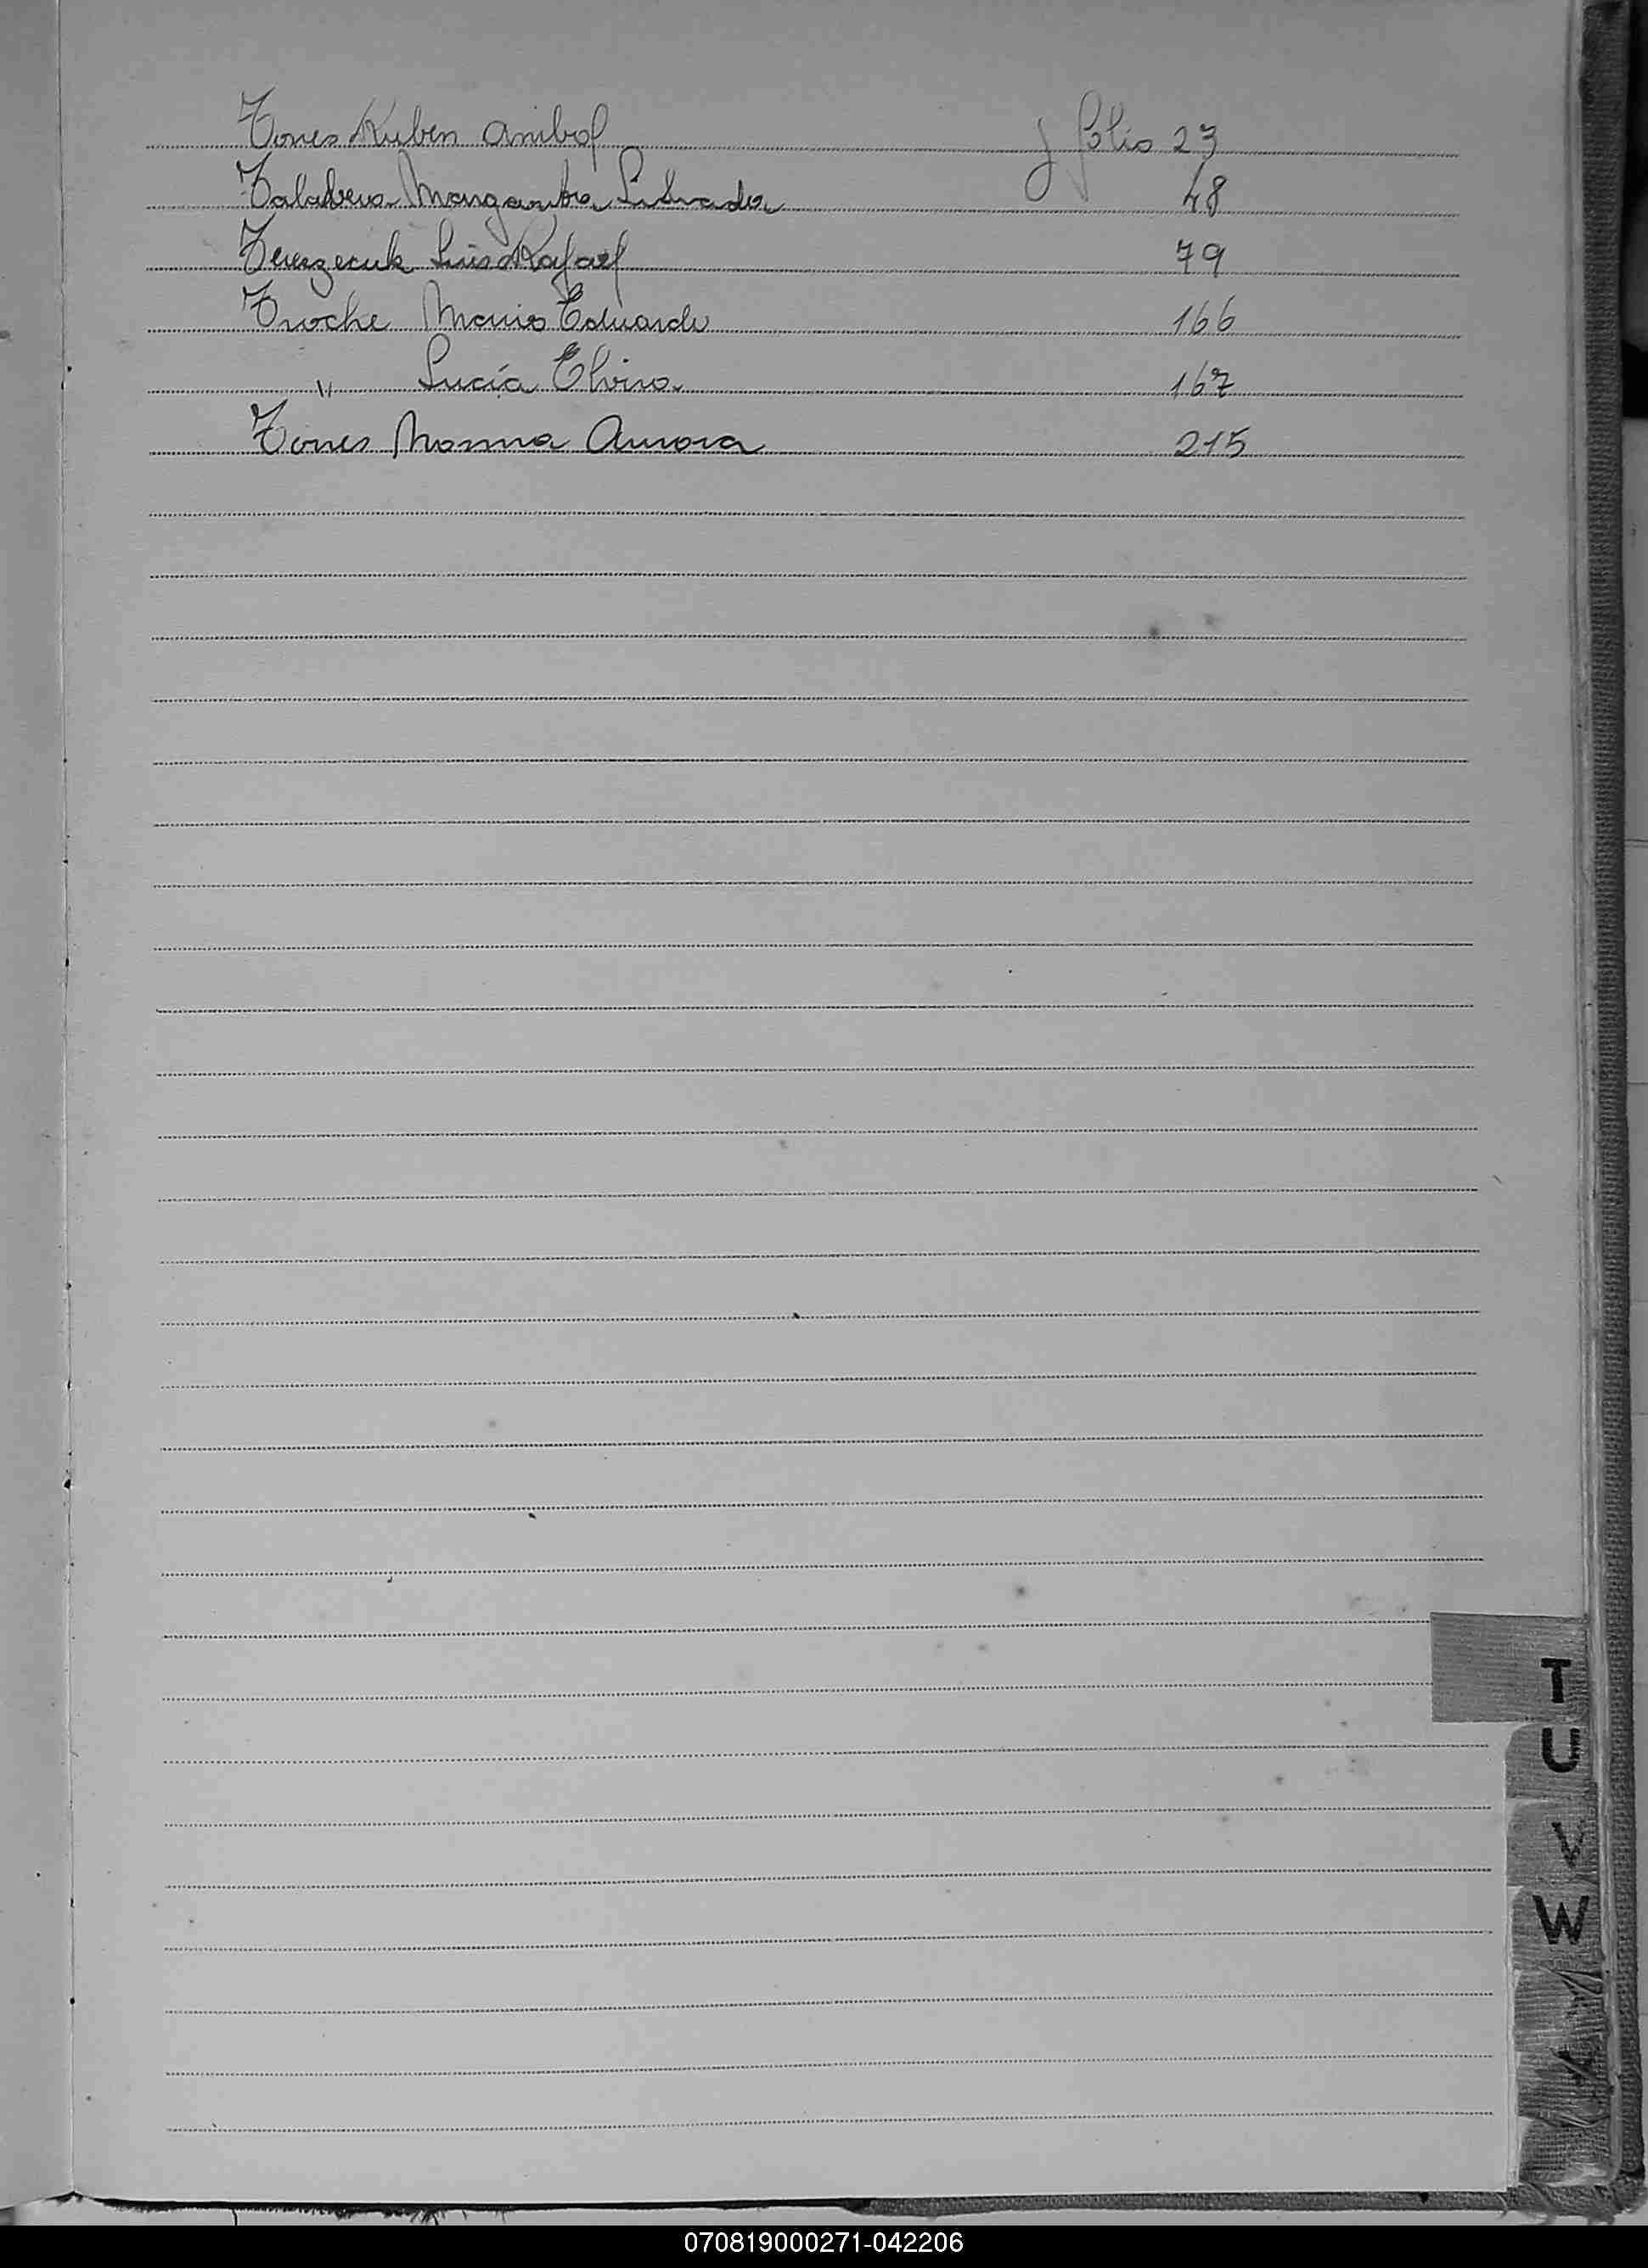 Torres Ruben Anibal folio 23
Talavera Margarita Librada 48
Tereszecuk Luis Rafael 79
Troche Mario Eduardo 166
" Lucía Elvira 167
Torres Norma Aurora 215
T
U
V
W
070819000271-042206